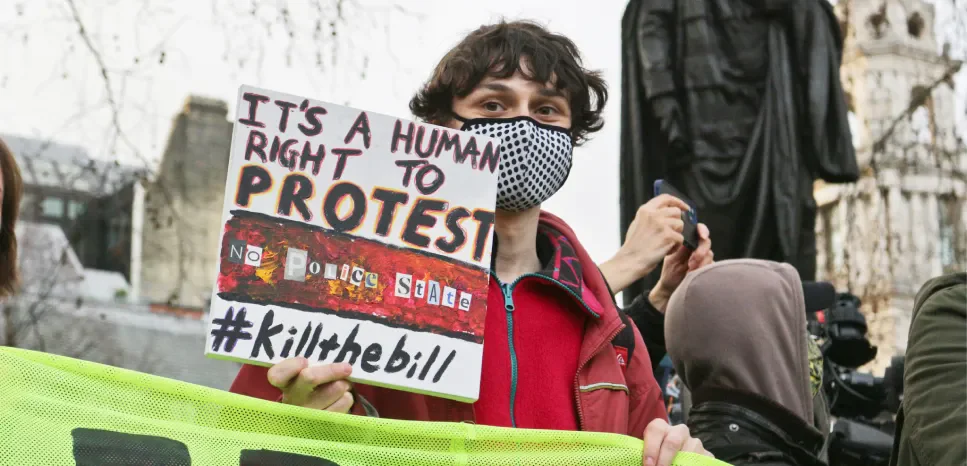 IT'S A HUMAN
RIGHT TO
PROTEST
No PolicE StAtE
#Killthebill